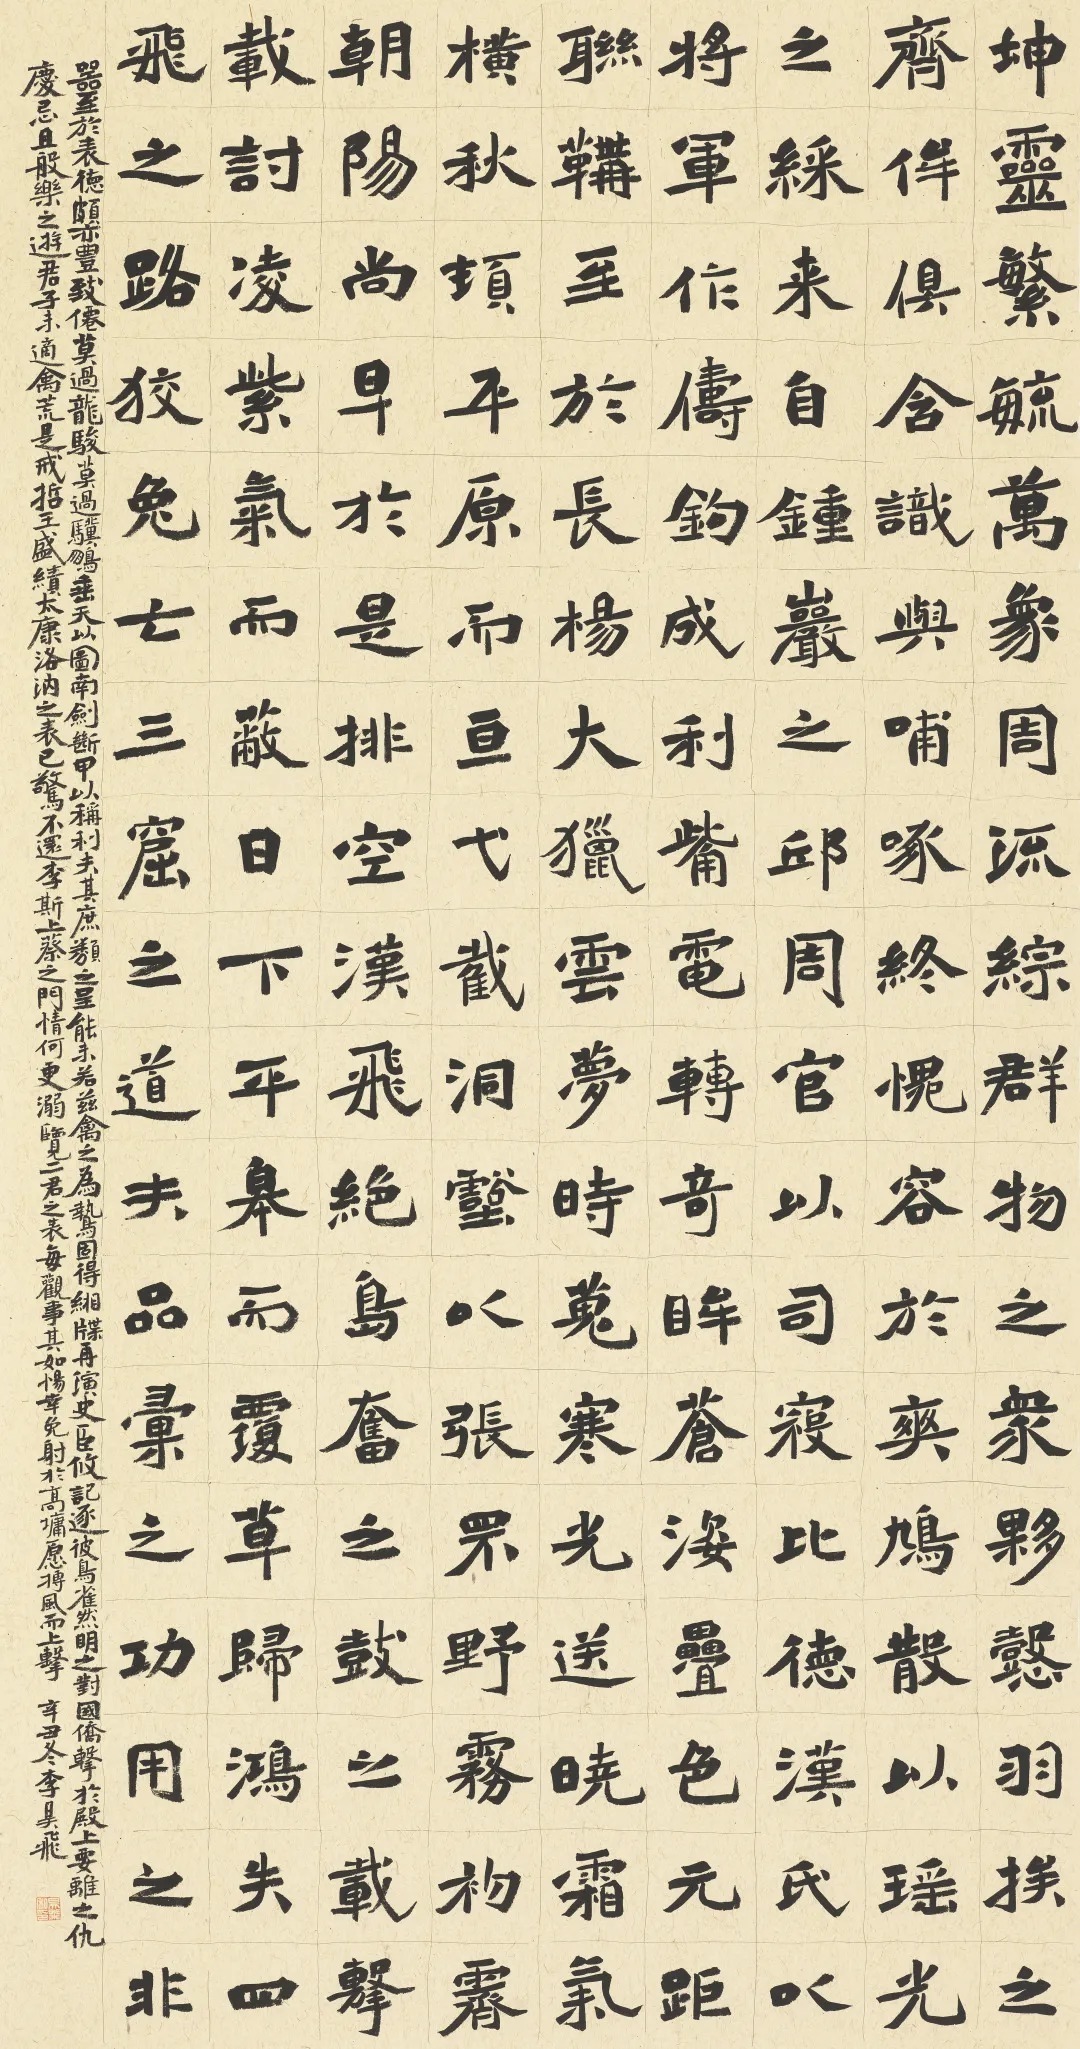 坤靈繁毓萬象周流綜群物之衆夥懿羽族之
齊侔俱含識與哺啄終愧容於爽鳩散以瑶光
之綵来自鍾巖之邱周官以司寇比德漢氏以
將軍作儔鉤成利觜電轉奇眸蒼姿疊色元距
聯鞲至於長楊大獵雲夢時蒐寒光送曉霜氣
横秋頓平原而亘弋截洞壑以張罘野霧初霽
朝陽尚早於是排空漢飛絶島奮之鼓之載擊
載討凌紫氣而蔽日下平皋而覆草歸鴻失四
飛之路狡兔亡三窟之道夫品彙之功用之非
噐至於表德頗亦豐致僊莫過龍駿莫過驥鵬垂天以圖南劍斷甲以稱利夫其庶類之呈能未若兹禽之為鷙固得緗牒再演史臣攸記逐彼鳥雀然明之對國僑擊於殿上要離之仇
慶忌且般樂之遊君子未適禽荒是戒哲王盛績太康洛汭之表已驚不還李斯上蔡之門情何更溺覽二君之表每觀事其如惕幸免射於高墉愿搏風而上擊 辛丑冬李昊飛